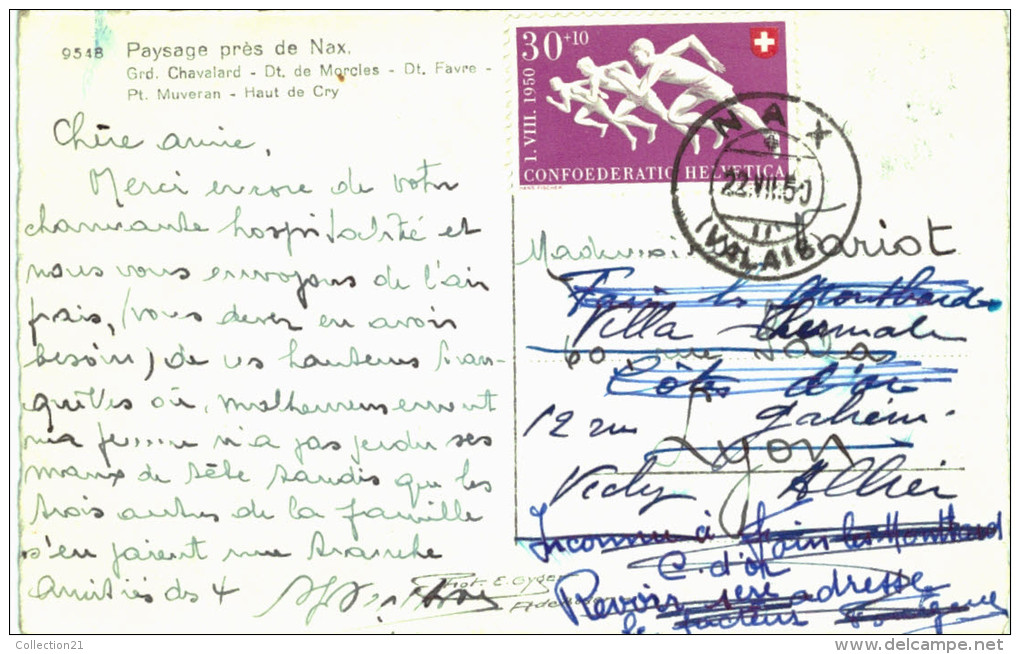 9548 Paysage près de Nax.
Grd. Chavalard - Dt. de Morcles - Dt. Favre -
Pt. Muveran - Haut de Cry
30+10
1. VIII. 1950
CONFOEDERATIO HELVETICA
HANS FISCHER
NAX
22.VII.50
(VALAIS)
Chère amie,
Merci encore de votre
charmante hospitalité et
nous vous envoyons de l'air
frais, (vous devez en avoir
besoin) de ces hauteurs tran-
quilles où, malheureusement
ma femme n'a pas perdu ses
maux de tête tandis que les
trois autres de la famille
s'en paient une tranche
Amitiés des 4
Phot. E. Gyger
Mademoiselle Tariot
Fain les Montbard
Villa Thermale
60 rue
Côte d'or
12 rue Galliéni
Lyon
Vichy Allier
Inconnu à Fain les Montbard
C. d'or
Revoir adresse
le facteur
Collection21
www.delcampe.net